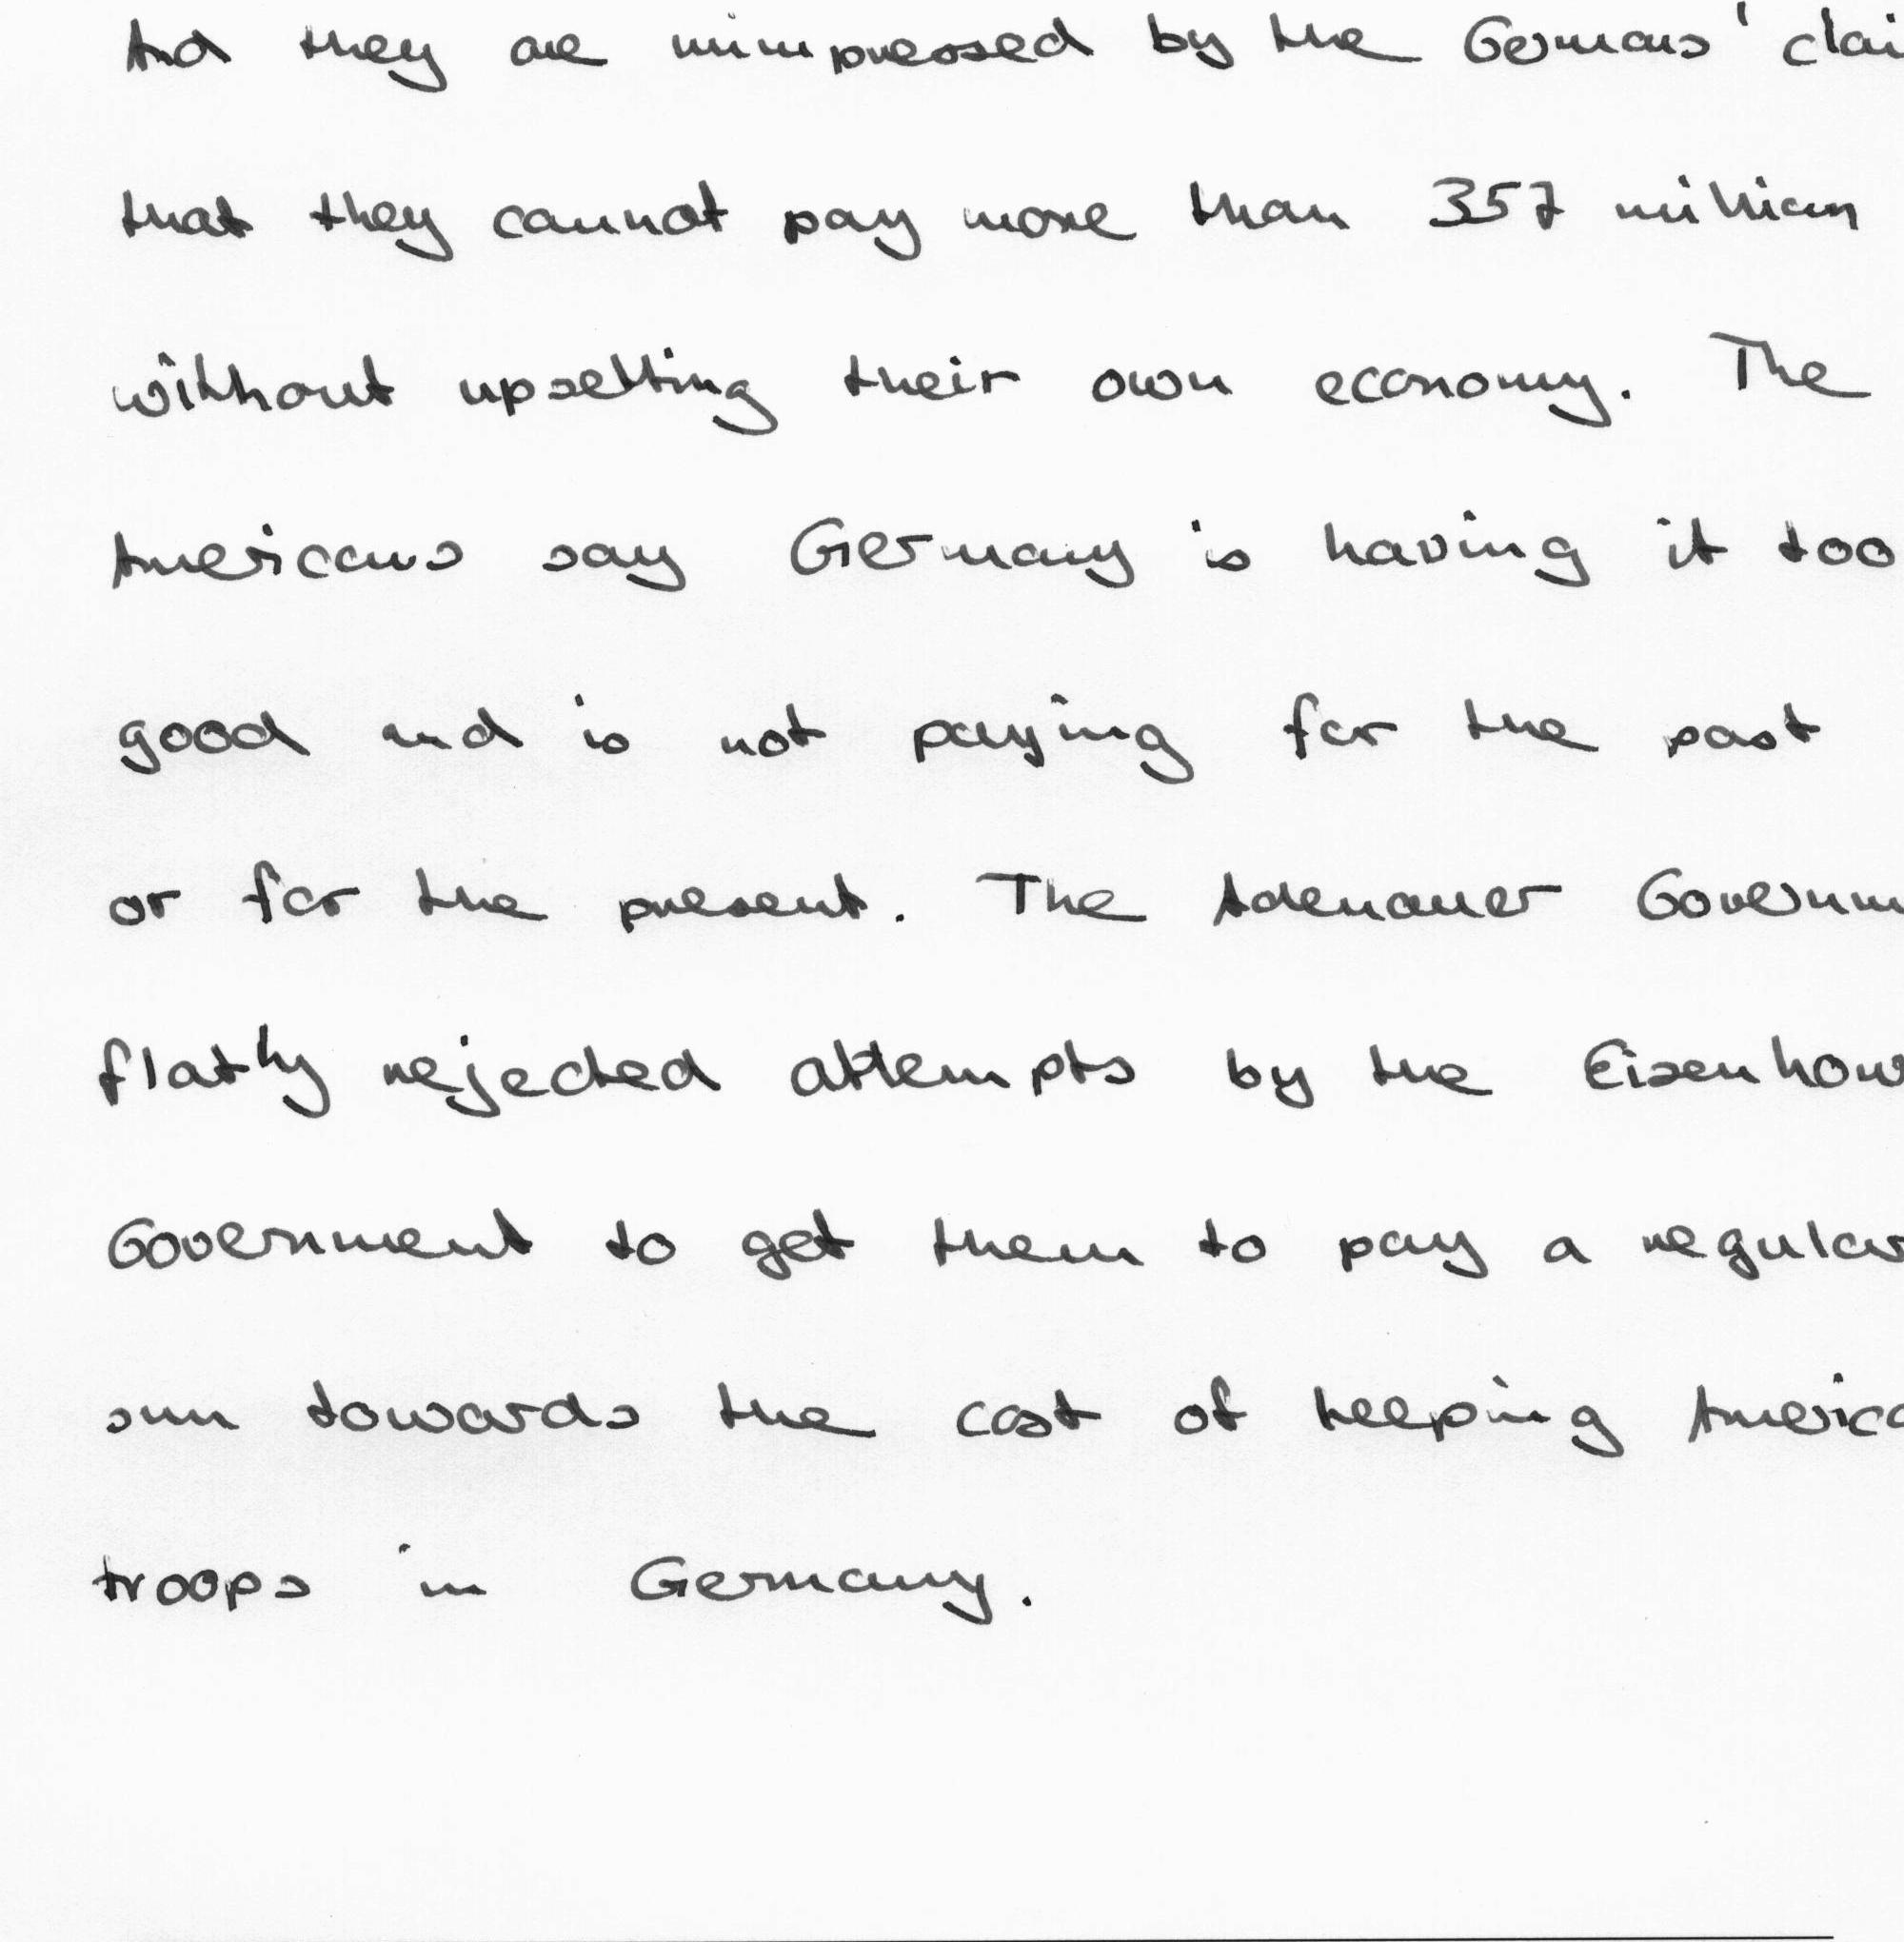 And they are unimpressed by the Germans' clai
that they cannot pay more than 357 million
without upsetting their own economy. The
Americans say Germany is having it too
good and is not paying for the past
or for the present. The Adenauer Governm
flatly rejected attempts by the Eisenhow
Government to get them to pay a regular
sum towards the cost of keeping America
troops in Germany.